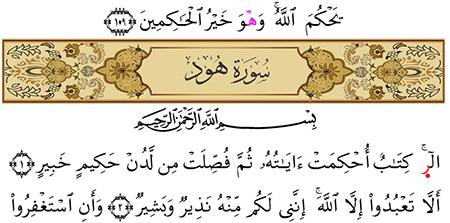 يَحْكُمَ ٱللَّهُ ۚ وَهُوَ خَيْرُ ٱلْحَـٰكِمِينَ ﴿١٠٩﴾
سُورَةُ هُودٍ
بِسْمِ ٱللَّهِ ٱلرَّحْمَـٰنِ ٱلرَّحِيمِ
الٓر ۚ كِتَـٰبٌ أُحْكِمَتْ ءَايَـٰتُهُۥ ثُمَّ فُصِّلَتْ مِن لَّدُنْ حَكِيمٍ خَبِيرٍ ﴿١﴾
أَلَّا تَعْبُدُوٓا۟ إِلَّا ٱللَّهَ ۚ إِنَّنِى لَكُم مِّنْهُ نَذِيرٌ وَبَشِيرٌ ﴿٢﴾ وَأَنِ ٱسْتَغْفِرُوا۟